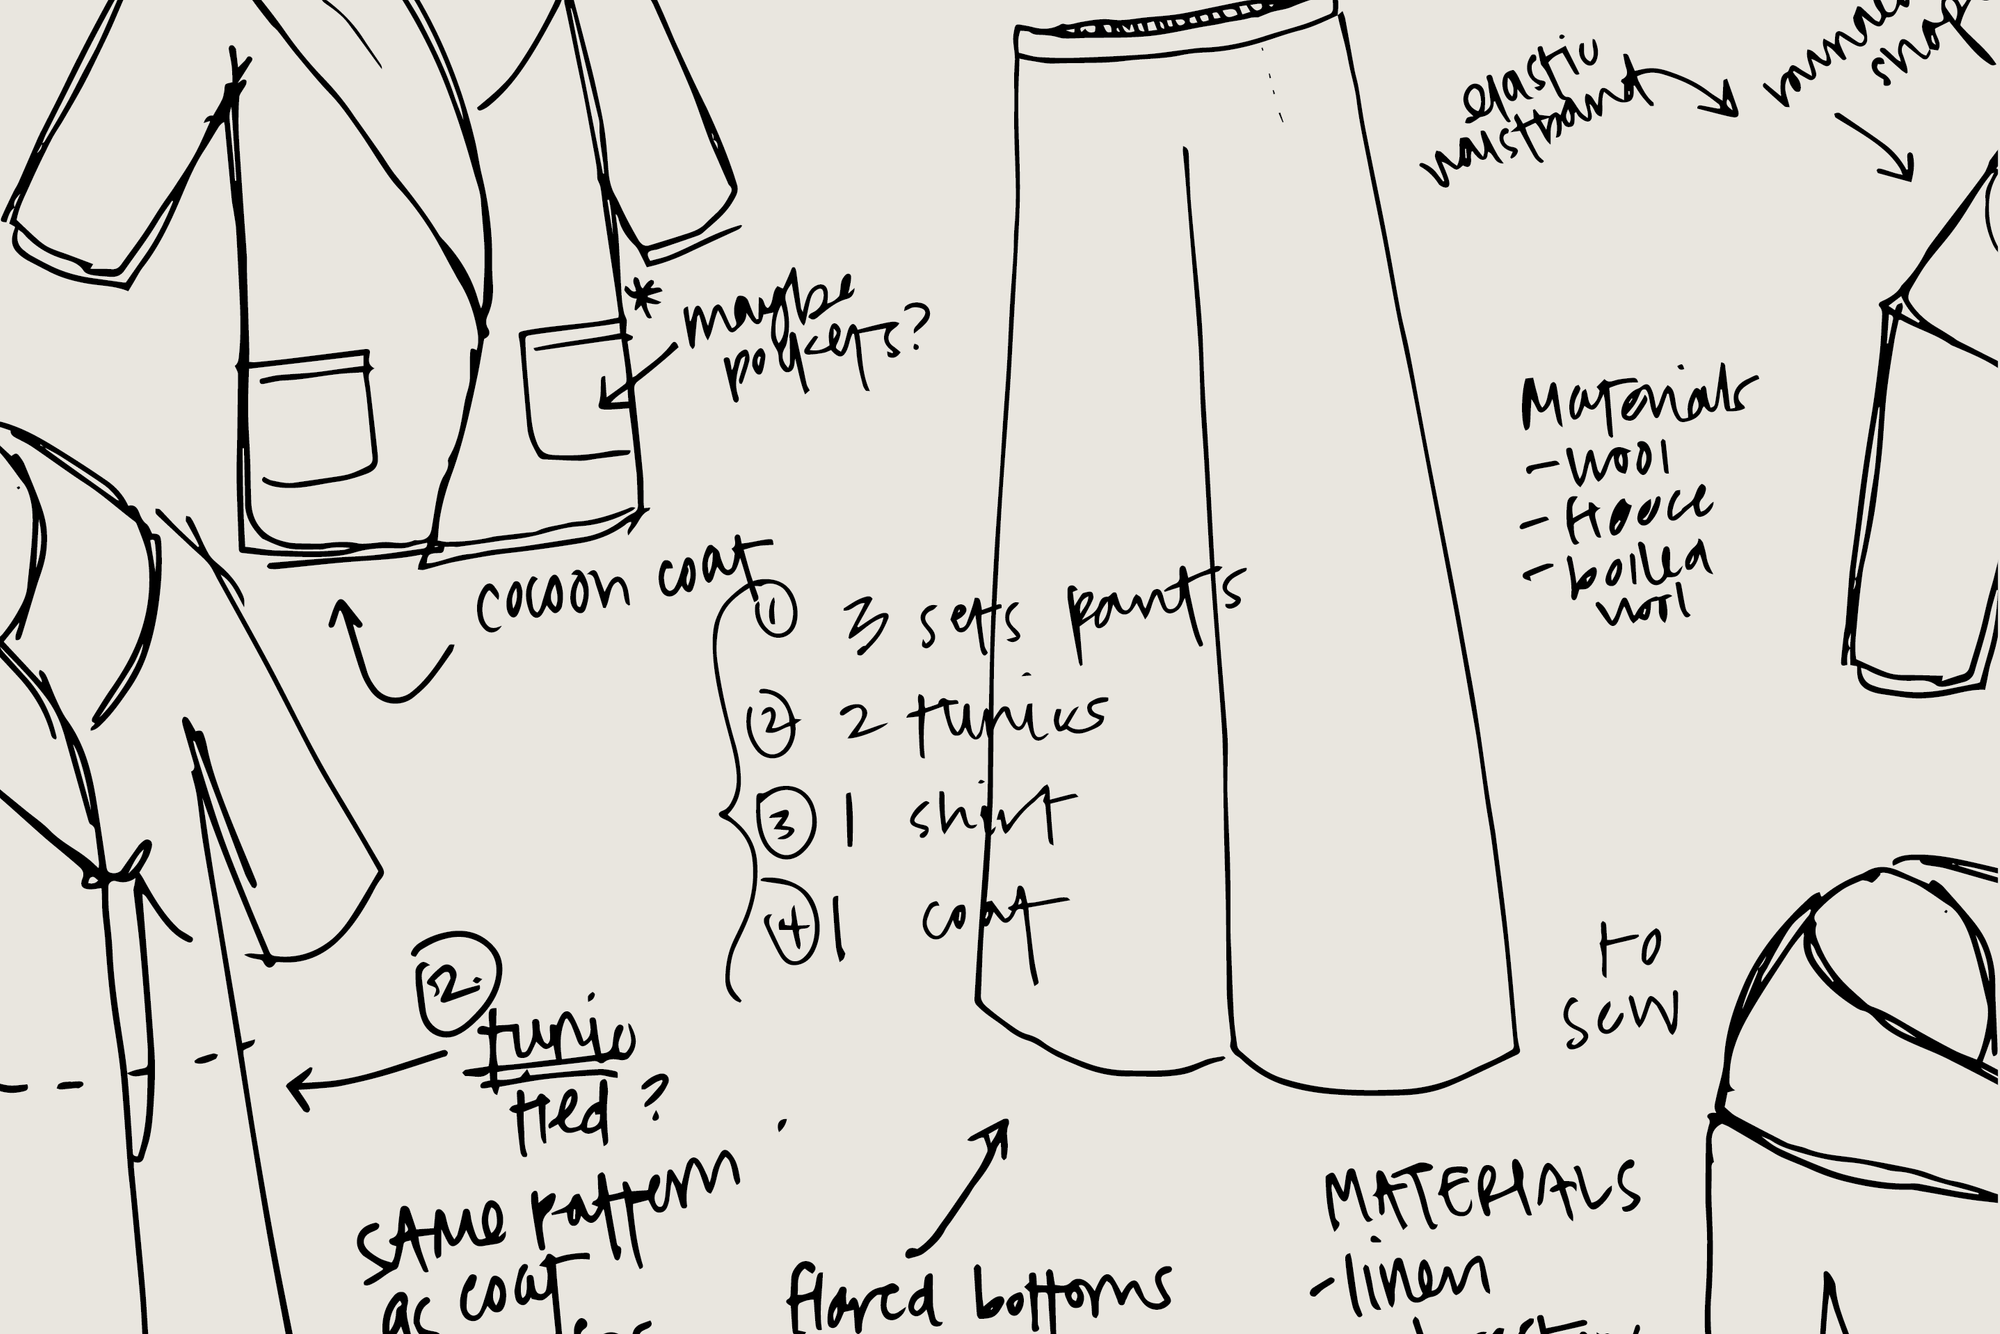 elastic
waistband
snap
* maybe
pockets?
Materials
- wool
- fleece
- boiled
wool
cocoon coat
① 3 sets pants
② 2 tunics
③ 1 shirt
④ 1 coat
to
sew
2.
tunic
tied?
SAME pattern
as coat
flared bottoms
MATERIALS
- linen